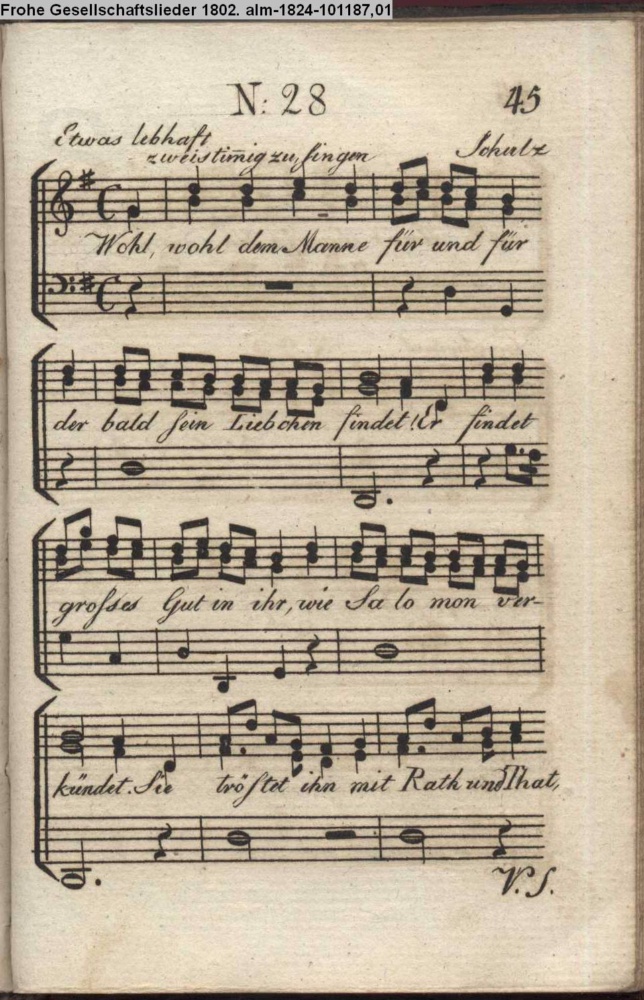 Frohe Gesellschaftslieder 1802. alm-1824-101187,01
N: 28
45
Etwas lebhaft
zweistim̅ig zu singen
Schulz
Wohl, wohl dem Manne für und für
der bald sein Liebchen findet! Er findet
grosses Gut in ihr, wie Sa lo mon ver-
kündet. Sie tröstet ihn mit Rath und That,
V. S.